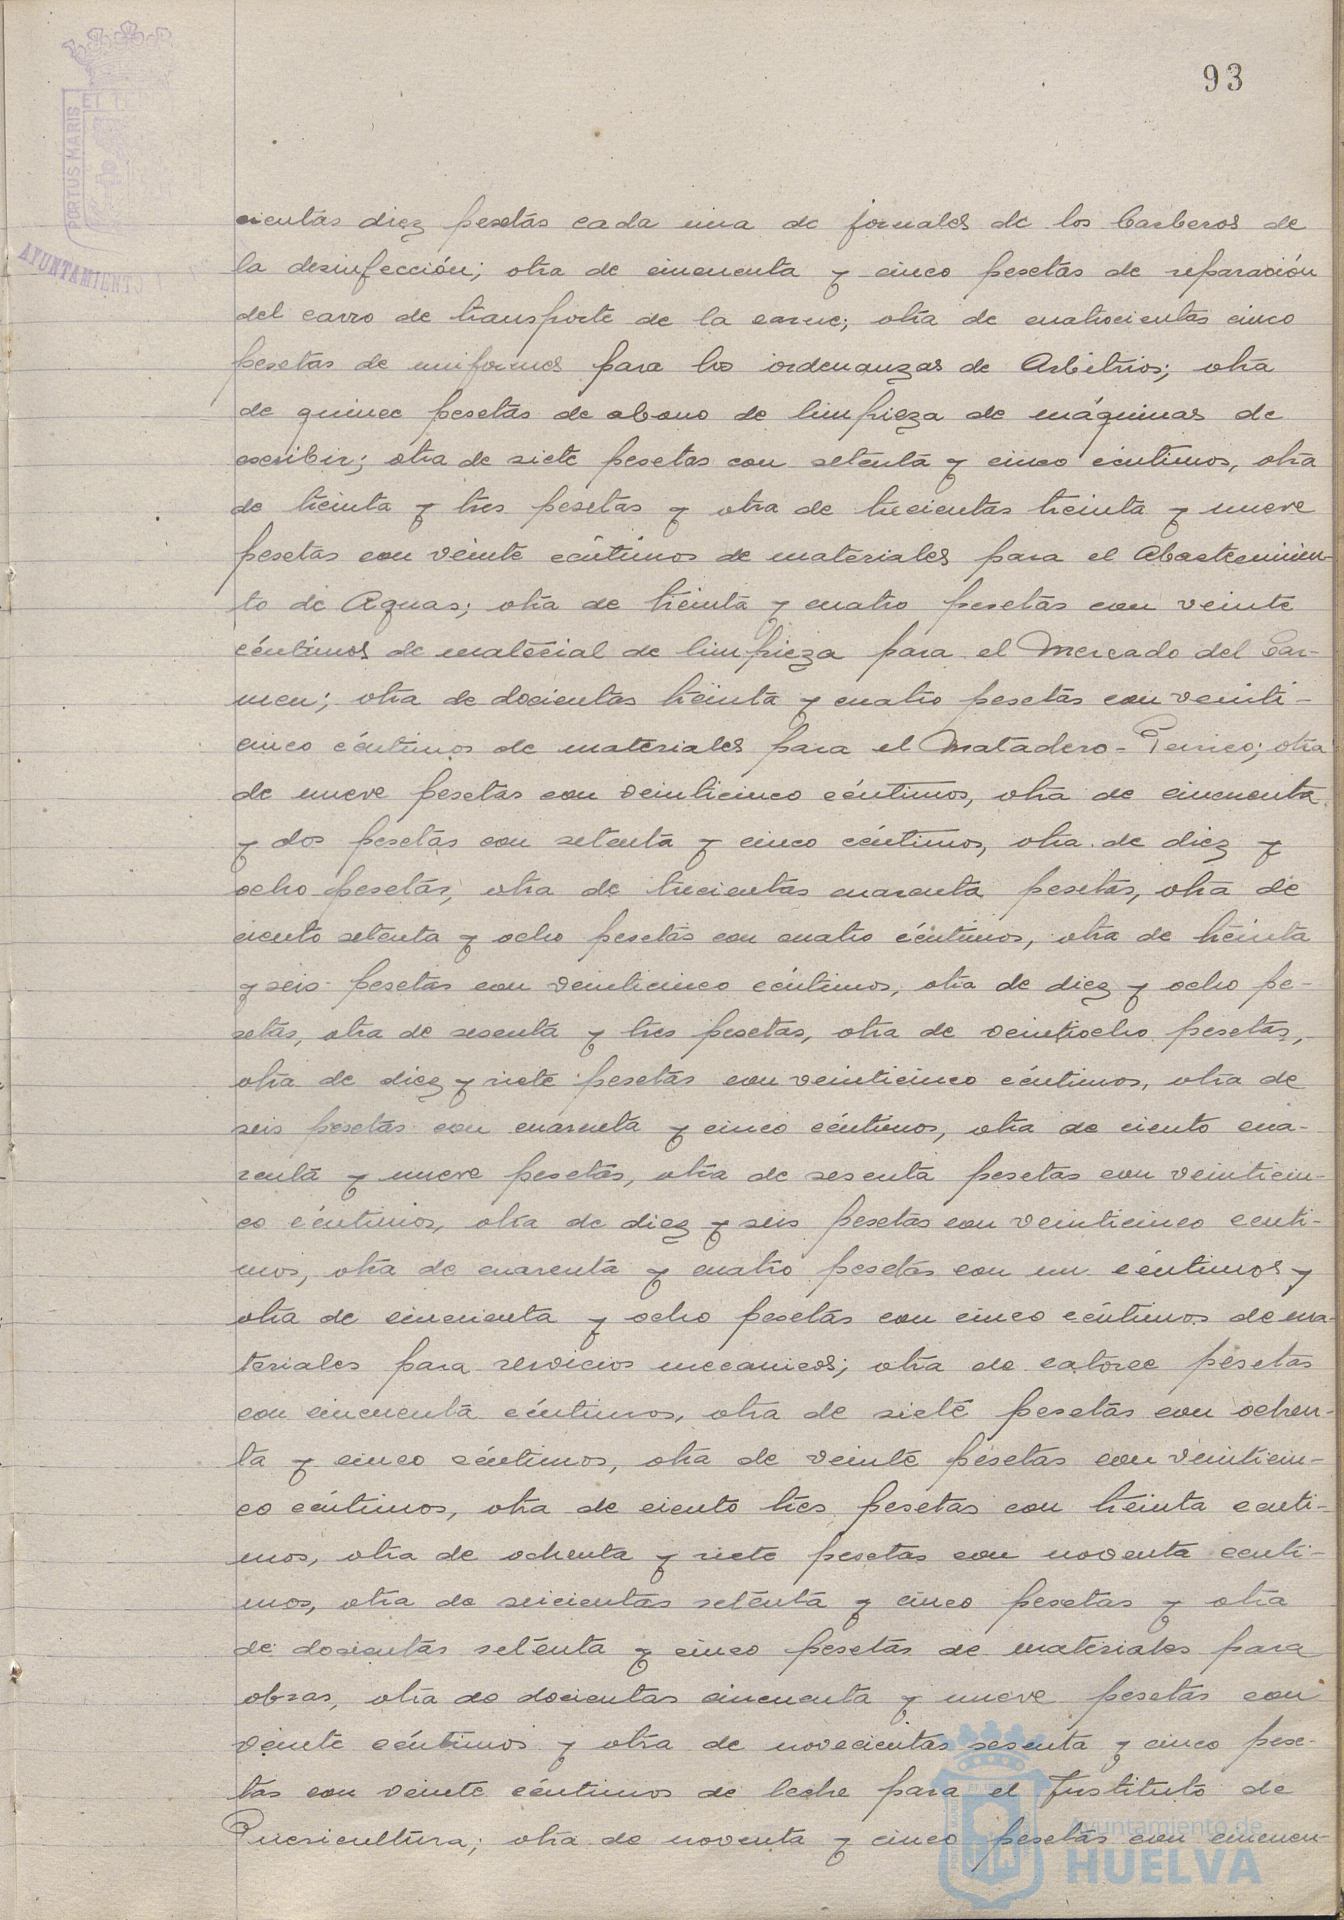 93
PORTUS MARIS
ET TERR
AYUNTAMIENTO
cientas diez pesetas cada una de jornales de los barberos de
la desinfección; otra de cincuenta y cinco pesetas de reparación
del carro de transporte de la carne; otra de cuatrocientas cinco
pesetas de uniformes para los ordenanzas de Arbitrios; otra
de quince pesetas de abono de limpieza de máquinas de
escribir; otra de siete pesetas con setenta y cinco céntimos, otra
de treinta y tres pesetas y otra de trecientas treinta y nueve
pesetas con veinte céntimos de materiales para el Abastecimien-
to de Aguas; otra de treinta y cuatro pesetas con veinte
céntimos de material de limpieza para el Mercado del Car-
men; otra de docientas treinta y cuatro pesetas con veinti-
cinco céntimos de materiales para el Matadero-; otra
de nueve pesetas con veinticinco céntimos, otra de cincuenta
y dos pesetas con setenta y cinco céntimos, otra de diez y
ocho pesetas, otra de trecientas cuarenta pesetas, otra de
ciento setenta y ocho pesetas con cuatro céntimos, otra de treinta
y seis pesetas con veinticinco céntimos, otra de diez y ocho pe-
setas, otra de sesenta y tres pesetas, otra de veintiocho pesetas,
otra de diez y siete pesetas con veinticinco céntimos, otra de
seis pesetas con cuarenta y cinco céntimos, otra de ciento cua-
renta y nueve pesetas, otra de sesenta pesetas con veinticin-
co céntimos, otra de diez y seis pesetas con veinticinco centi-
mos, otra de cuarenta y cuatro pesetas con un céntimos y
otra de cincuenta y ocho pesetas con cinco céntimos de ma-
teriales para servicios mecanicos; otra de catorce pesetas
con cincuenta céntimos, otra de siete pesetas con ochen-
ta y cinco céntimos, otra de veinte pesetas con veinticin-
co céntimos, otra de ciento tres pesetas con treinta centi-
mos, otra de ochenta y siete pesetas con noventa centi-
mos, otra de seicientas setenta y cinco pesetas y otra
de docientas setenta y cinco pesetas de materiales para
obras, otra de docientas cincuenta y nueve pesetas con
veinte céntimos y otra de novecientas sesenta y cinco pese-
tas con veinte céntimos de leche para el Instituto de
Puericultura; otra de noventa y cinco pesetas con cincuen-
Ayuntamiento de
HUELVA